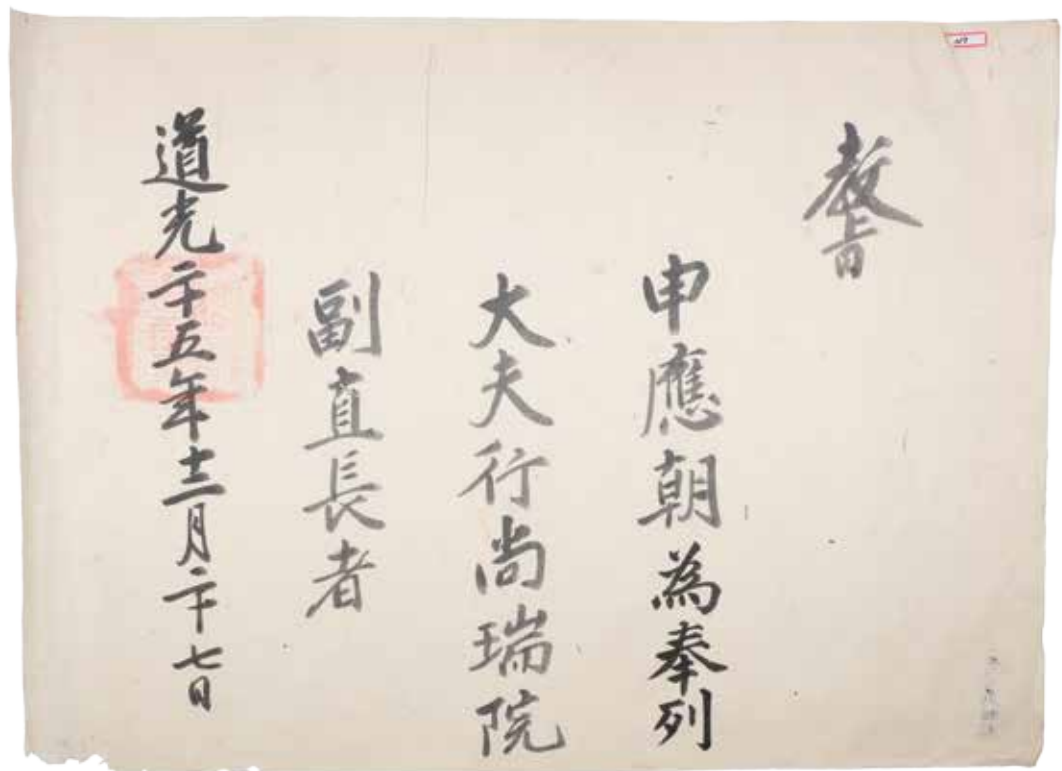 教旨
申應朝為奉列
大夫行尚瑞院
副直長者
道光二十五年十二月二十七日